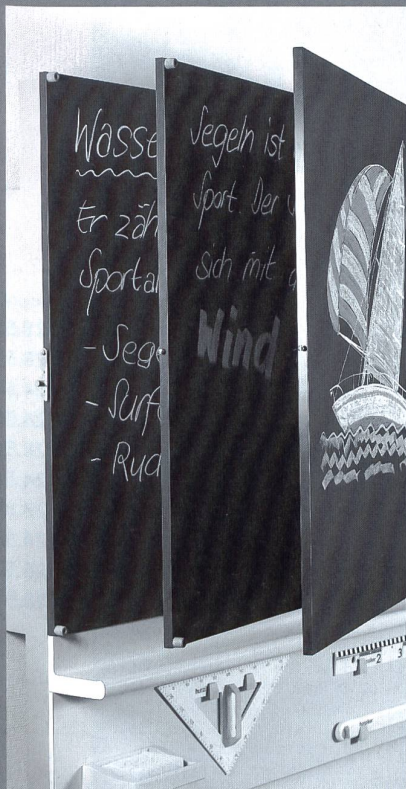 Wasse
Er zäh
Sporta
- Sege
- Surf
- Rud
Segeln ist
Sport. Der
sich mit
Wind
2 3